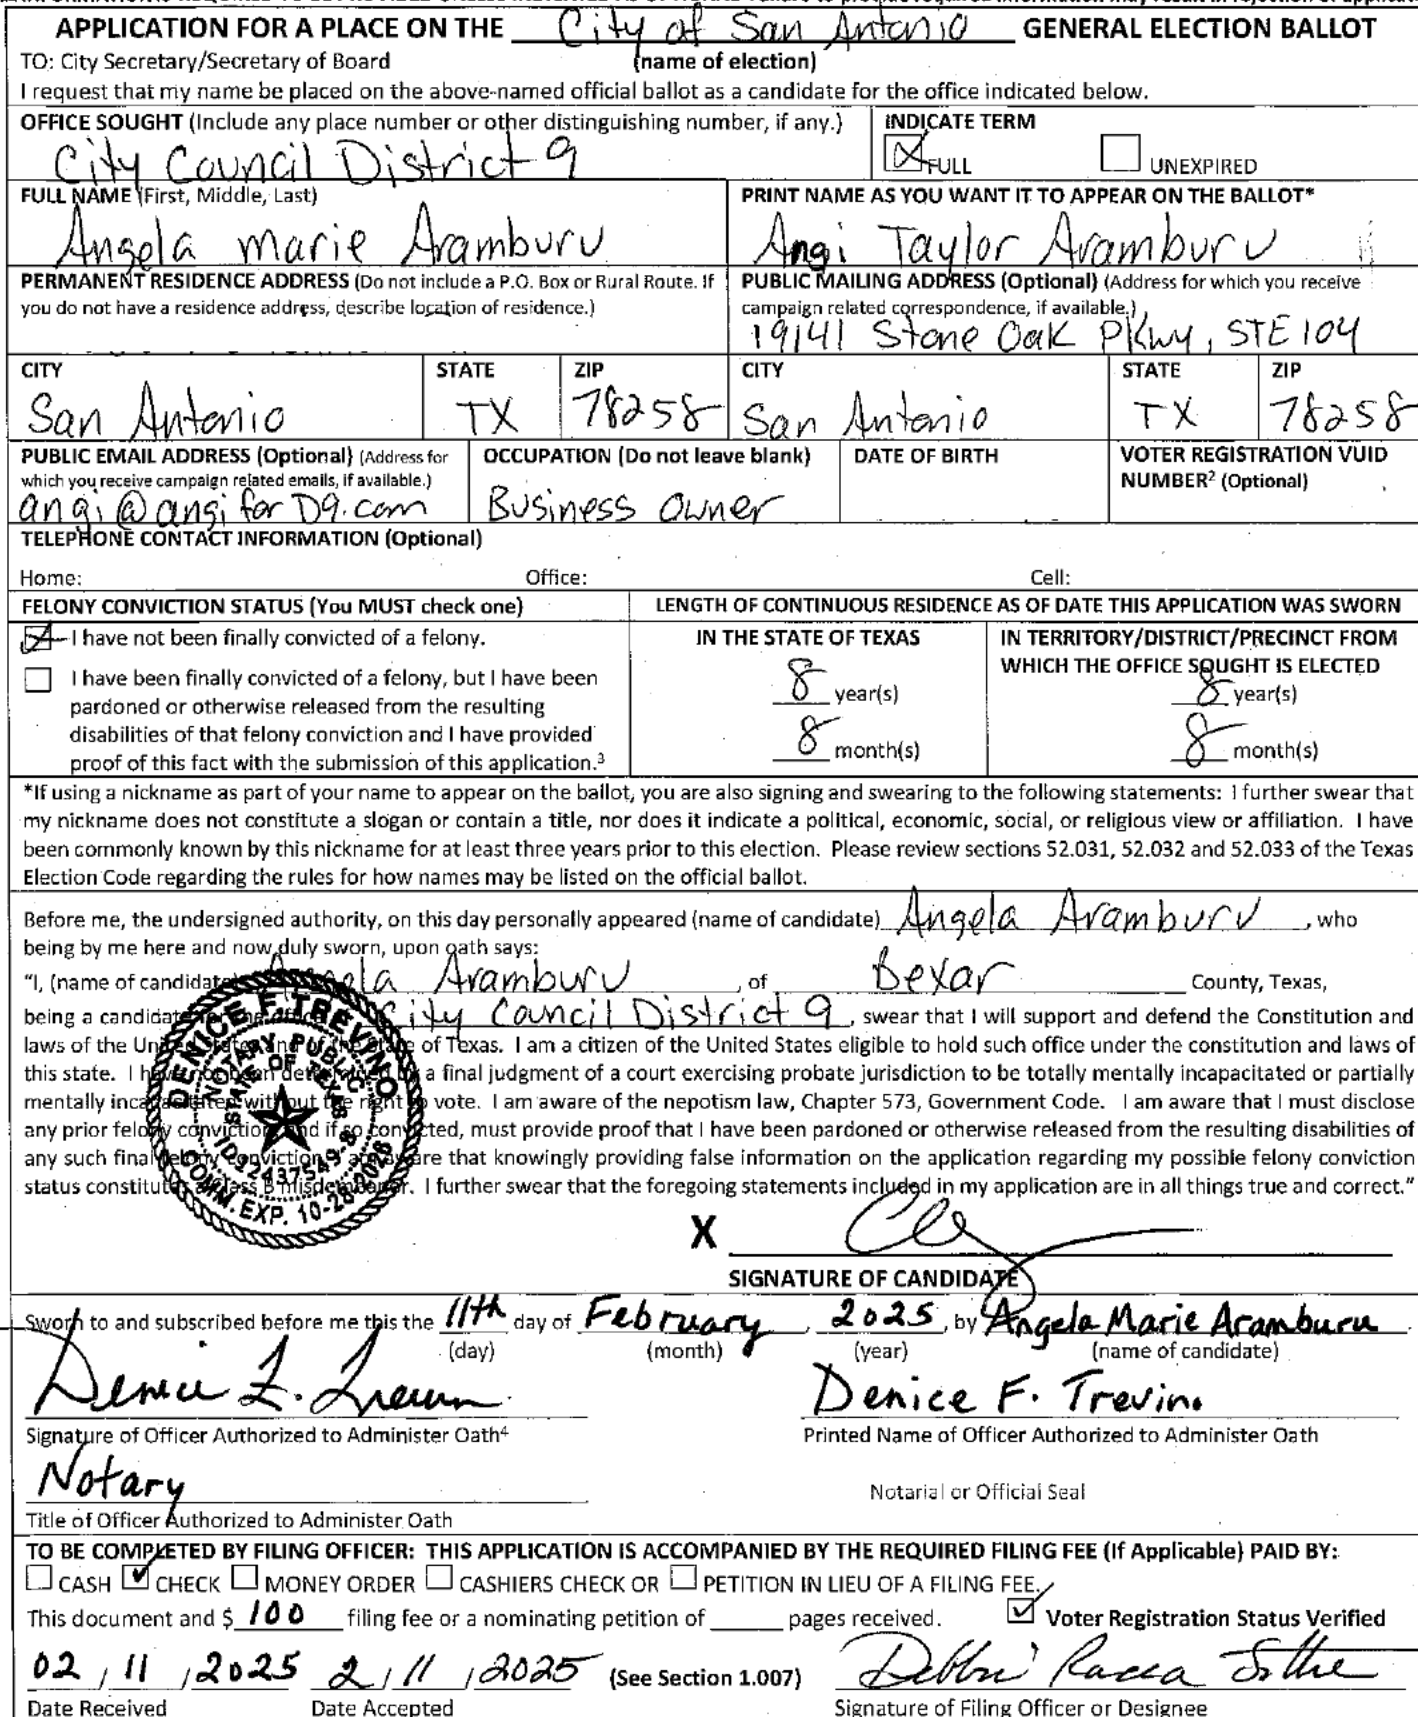 APPLICATION FOR A PLACE ON THE City of San Antonio GENERAL ELECTION BALLOT
TO: City Secretary/Secretary of Board (name of election)
I request that my name be placed on the above-named official ballot as a candidate for the office indicated below.
OFFICE SOUGHT (Include any place number or other distinguishing number, if any.) INDICATE TERM
City Council District 9 FULL UNEXPIRED
FULL NAME (First, Middle, Last) PRINT NAME AS YOU WANT IT TO APPEAR ON THE BALLOT*
Angela Marie Aramburu Angi Taylor Aramburu
PERMANENT RESIDENCE ADDRESS (Do not include a P.O. Box or Rural Route. If PUBLIC MAILING ADDRESS (Optional) (Address for which you receive
you do not have a residence address, describe location of residence.) campaign related correspondence, if available.)
19141 Stone Oak PKwy, STE 104
CITY STATE ZIP CITY STATE ZIP
San Antonio TX 78258 San Antonio TX 78258
PUBLIC EMAIL ADDRESS (Optional) (Address for OCCUPATION (Do not leave blank) DATE OF BIRTH VOTER REGISTRATION VUID
which you receive campaign related emails, if available.) NUMBER² (Optional)
angi@angiforD9.com Business Owner
TELEPHONE CONTACT INFORMATION (Optional)
Home: Office: Cell:
FELONY CONVICTION STATUS (You MUST check one) LENGTH OF CONTINUOUS RESIDENCE AS OF DATE THIS APPLICATION WAS SWORN
I have not been finally convicted of a felony. IN THE STATE OF TEXAS IN TERRITORY/DISTRICT/PRECINCT FROM
WHICH THE OFFICE SOUGHT IS ELECTED
I have been finally convicted of a felony, but I have been 8 year(s) 8 year(s)
pardoned or otherwise released from the resulting
disabilities of that felony conviction and I have provided 8 month(s) 8 month(s)
proof of this fact with the submission of this application.³
*If using a nickname as part of your name to appear on the ballot, you are also signing and swearing to the following statements: I further swear that
my nickname does not constitute a slogan or contain a title, nor does it indicate a political, economic, social, or religious view or affiliation. I have
been commonly known by this nickname for at least three years prior to this election. Please review sections 52.031, 52.032 and 52.033 of the Texas
Election Code regarding the rules for how names may be listed on the official ballot.
Before me, the undersigned authority, on this day personally appeared (name of candidate) Angela Aramburu, who
being by me here and now duly sworn, upon oath says:
"I, (name of candidate) Angela Aramburu, of Bexar County, Texas,
being a candidate for the office of City Council District 9, swear that I will support and defend the Constitution and
laws of the United States and of the State of Texas. I am a citizen of the United States eligible to hold such office under the constitution and laws of
this state. I have not been determined by a final judgment of a court exercising probate jurisdiction to be totally mentally incapacitated or partially
mentally incapacitated without the right to vote. I am aware of the nepotism law, Chapter 573, Government Code. I am aware that I must disclose
any prior felony conviction, and if so convicted, must provide proof that I have been pardoned or otherwise released from the resulting disabilities of
any such final felony conviction. I am aware that knowingly providing false information on the application regarding my possible felony conviction
status constitutes a Class B misdemeanor. I further swear that the foregoing statements included in my application are in all things true and correct."
DENICE F TREVINO
NOTARY PUBLIC
STATE OF TEXAS
ID 12437549-8
COMM. EXP. 10-28-2026
X
SIGNATURE OF CANDIDATE
Sworn to and subscribed before me this the 11th day of February, 2025, by Angela Marie Aramburu.
(day) (month) (year) (name of candidate)
Denice F. Trevino Denice F. Trevino
Signature of Officer Authorized to Administer Oath⁴ Printed Name of Officer Authorized to Administer Oath
Notary Notarial or Official Seal
Title of Officer Authorized to Administer Oath
TO BE COMPLETED BY FILING OFFICER: THIS APPLICATION IS ACCOMPANIED BY THE REQUIRED FILING FEE (If Applicable) PAID BY:
CASH CHECK MONEY ORDER CASHIERS CHECK OR PETITION IN LIEU OF A FILING FEE.
This document and $ 100 filing fee or a nominating petition of pages received. Voter Registration Status Verified
02 / 11 / 2025 2 / 11 / 2025 (See Section 1.007) Debbie Racca
Date Received Date Accepted Signature of Filing Officer or Designee